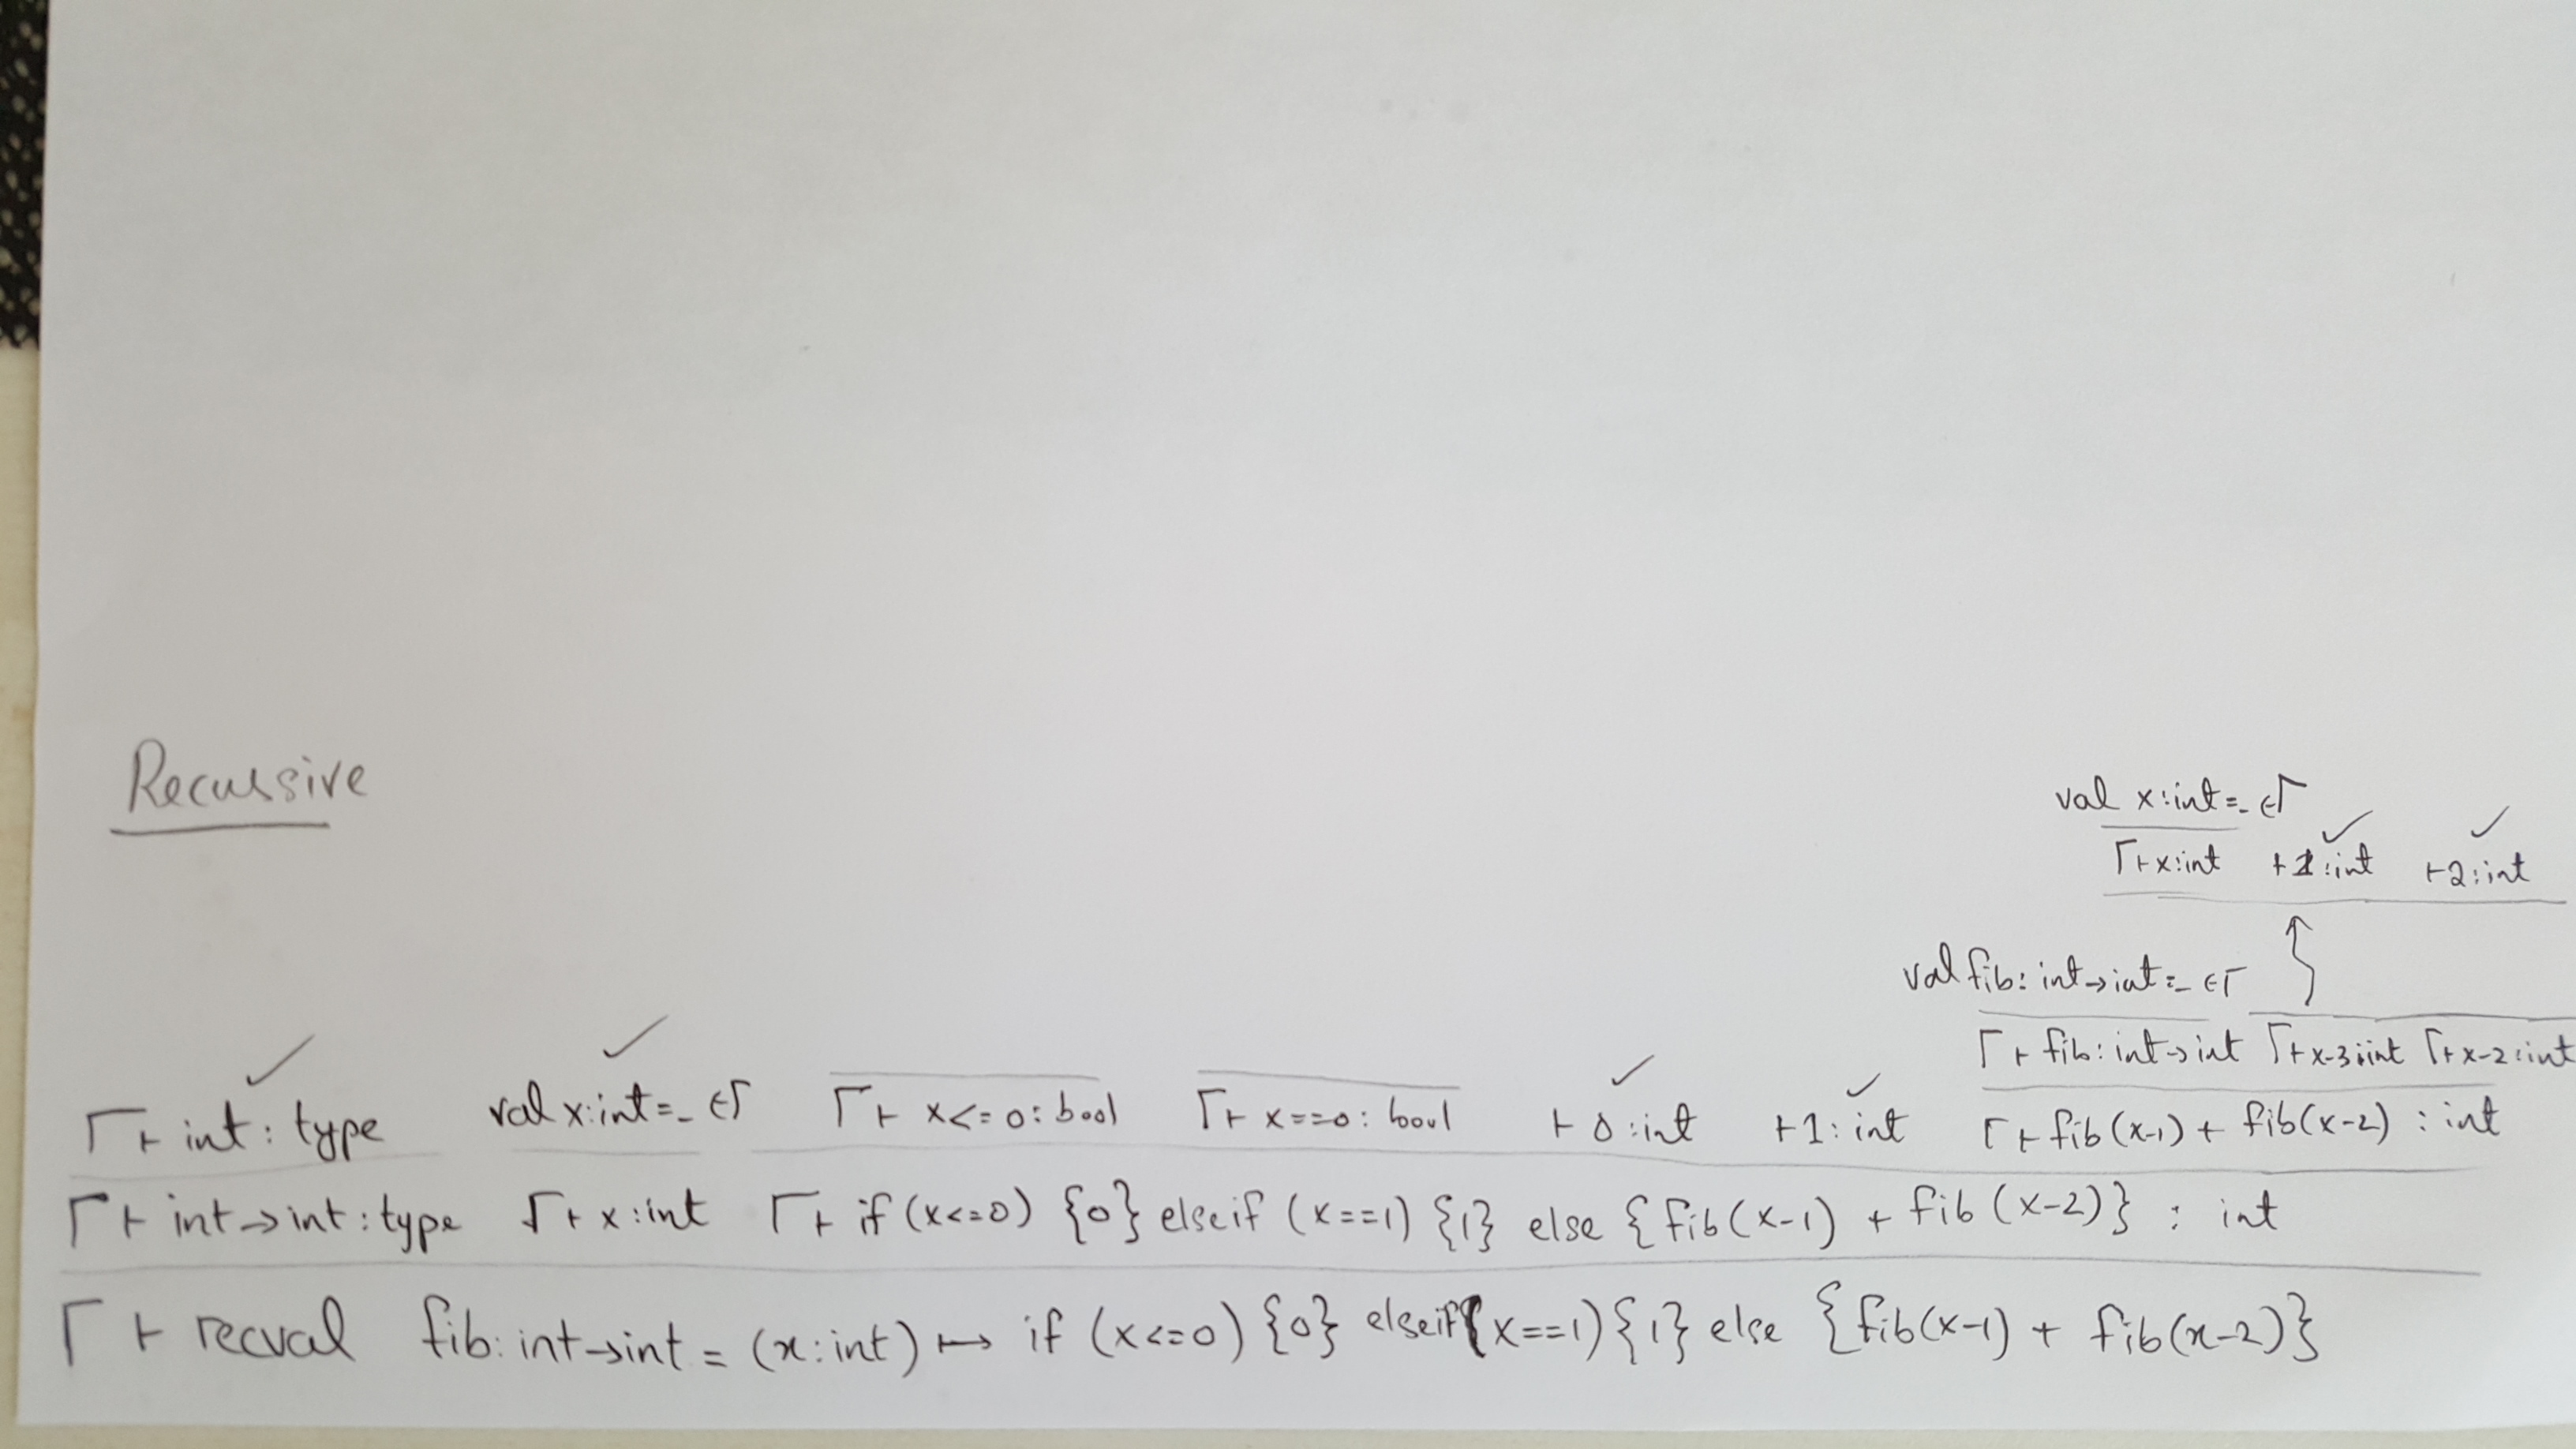 Recussive
val x:int=_ ∈Γ
Γ⊢x:int ⊢1:int ✓ ⊢2:int ✓
val fib: int→int=_ ∈Γ
Γ⊢ fib: int→int Γ⊢x-3:int Γ⊢x-2:int
Γ⊢ int: type ✓ val x:int=_ ∈Γ ✓ Γ⊢ x<=0: bool Γ⊢ x==0: bool ⊢ 0:int ✓ ⊢1: int ✓ Γ⊢fib(x-1)+ fib(x-2) : int
Γ⊢ int→int:type Γ⊢ x:int Γ⊢ if(x<=0) {0} elseif (x==1) {1} else {fib(x-1) + fib(x-2)} : int
Γ⊢ recval fib: int→int = (x:int) ↦ if (x<=0) {0} elseif(x==1){1} else {fib(x-1) + fib(x-2)}